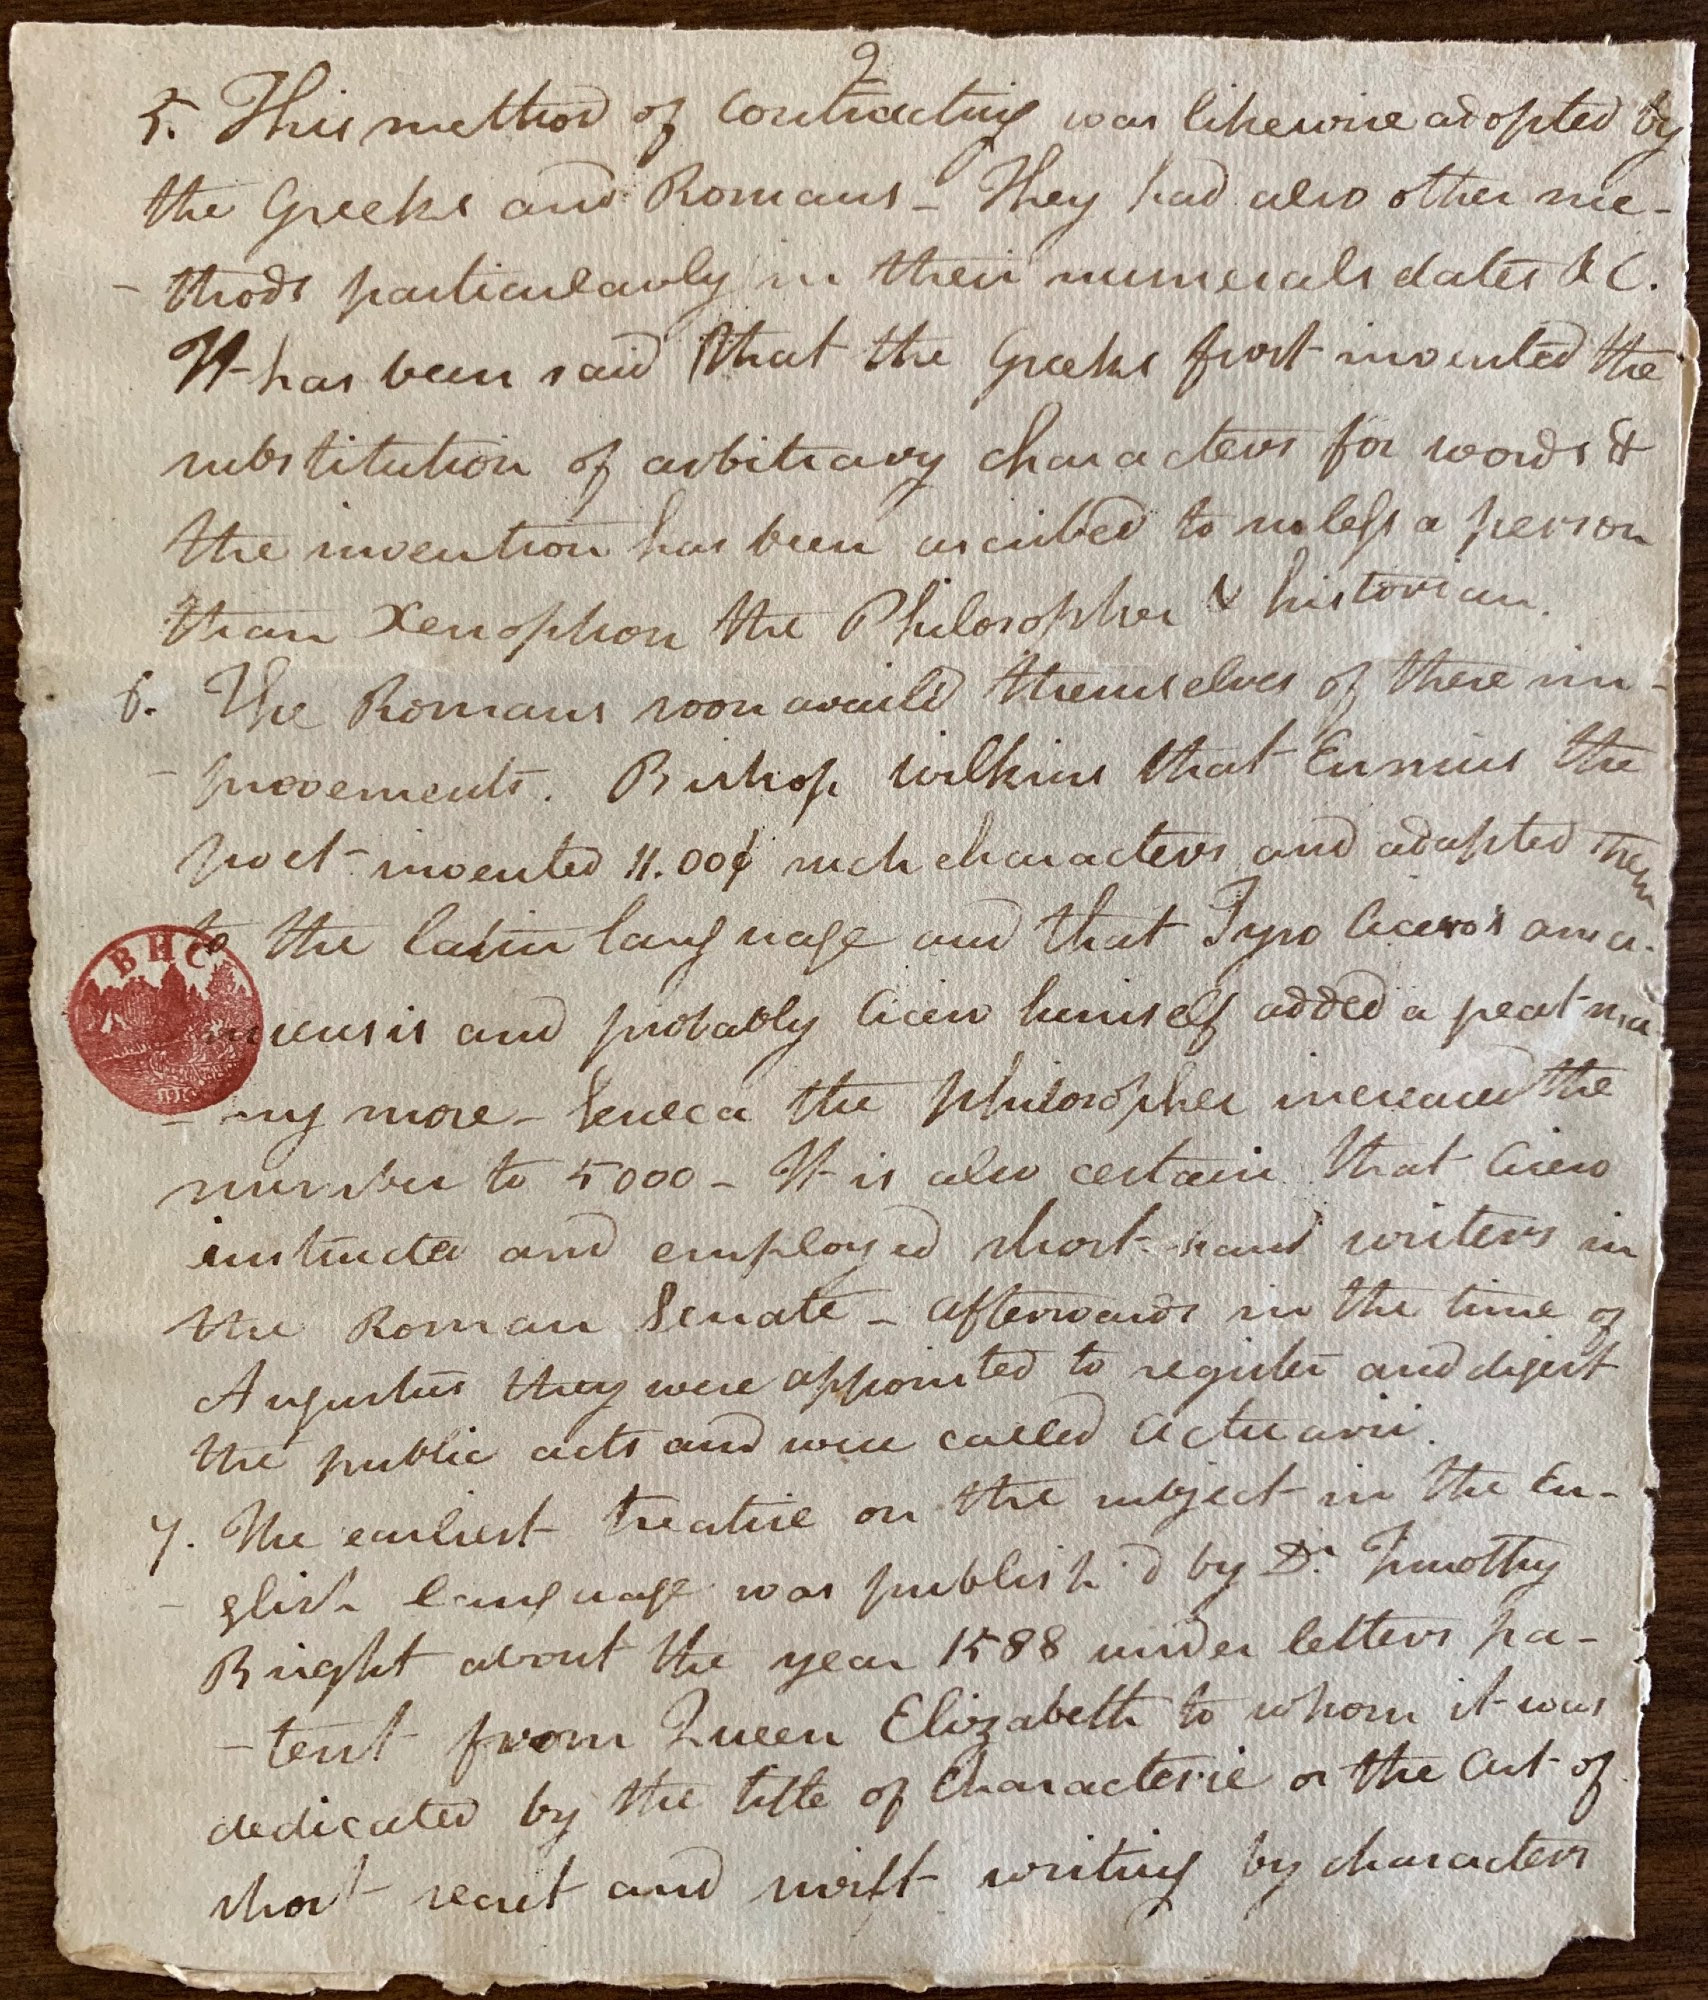 2
5. This method of contracting was likewise adopted by
the Greeks and Romans _ They had also other me-
- thods particularly in their numerals dates &C.
It has been said that the Greeks first invented the
substitution of arbitrary characters for words &
the invention has been ascribed to no less a person
than Xenophon the Philosopher & historian.
6. The Romans soon availd themselves of these im-
- provements. Bishop Wilkins that Ennius the
poet invented 11.00 such characters and adapted them
to the latin language and that Tyro Cicero's ama-
nuensis and probably Cicero himself added a great ma-
- ny more _ Seneca the philosopher increased the
number to 5000 _ It is also certain that Cicero
instructed and employed short-hand writers in
the Roman Senate _ afterwards in the time of
Augustus they were appointed to register and digest
the public acts and were called Actuarii.
7. The earliest treatise on the subject in the En-
- glish language was publish'd by Dr. Timothy
Bright about the year 1588 under letters pa-
- tent from Queen Elizabeth to whom it was
dedicated by the title of Characterie or the Art of
short secret and swift writing by characters
BHC